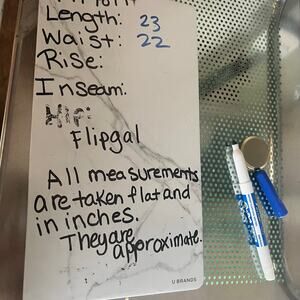 Length: 23
Waist: 22
Rise:
Inseam:
Hip:
Flipgal
All measurements
are taken flat and
in inches.
They are
approximate.
U BRANDS